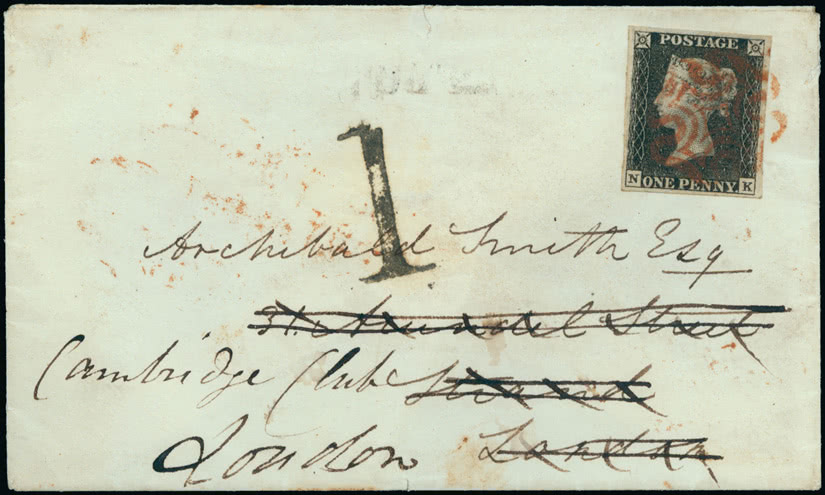 POSTAGE
N K
ONE PENNY
1
Archibald Smith Esq
31. Arundel Street
Cambridge Club Strand
London London